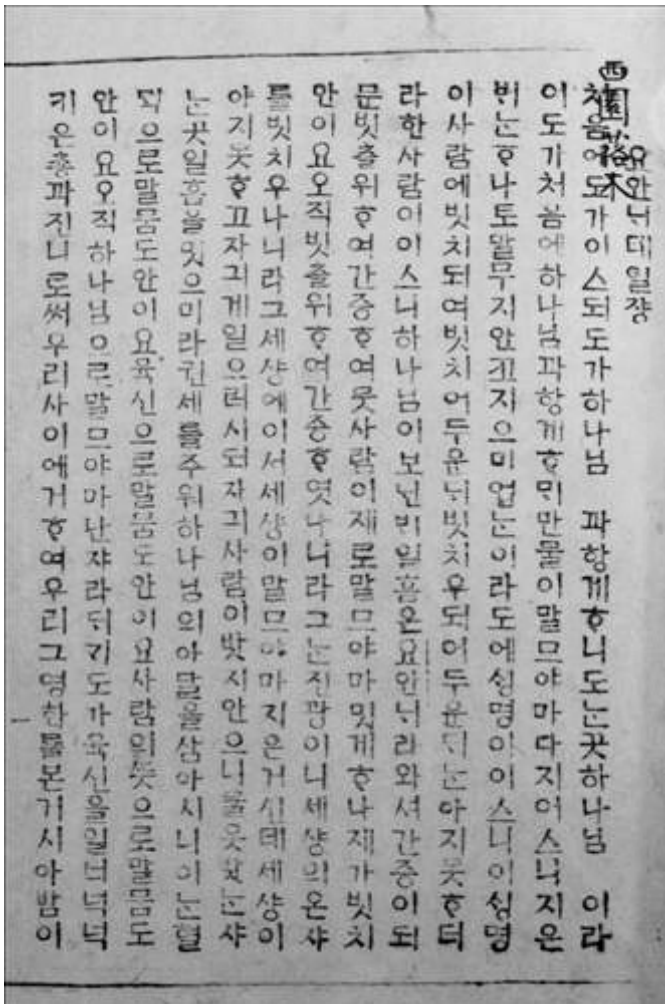 요안니데일쟝
처음에도가이스되도가하나님 과함게ᄒᆞ니도ᄂᆞᆫ곳하나님 이라
이도가처음에하나님과함게ᄒᆞᄆᆡ만물이말무야마다지어스니지은
ᄇᆡᄂᆞᆫᄒᆞ나토말무지안코지으미업ᄂᆞᆫ이라도에ᄉᆡᆼ명이이스니이ᄉᆡᆼ명
이사람에빗치되여빗치어두운ᄃᆡ빗치우되어두운ᄃᆡᄂᆞᆫ아지못ᄒᆞ더
라한사람이이스니하나님이보닌ᄇᆡ일홈은요안니라와셔간증이되
문빗츨위ᄒᆞ여간증ᄒᆞ여뭇사람이재로말무야마밋게ᄒᆞ나재가빗치
안이요오직빗츨위ᄒᆞ여간증ᄒᆞ엿나니라그ᄂᆞᆫ진광이니세샹의온샤
룸빗치우나니라그세샹에이셔세샹이말무야마지은거신데세샹이
아지못ᄒᆞ고자긔게일으러시되자긔사람이밧지안으니물읏밧ᄂᆞᆫ샤
ᄂᆞᆫ곳일홈을밋으미라권세를주워하나님의아달을삼아시니이ᄂᆞᆫ혈
믹으로말뭄도안이요육신으로말뭄도안이요사람의뜻으로말뭄도
안이요오직하나님으로말무야마난쟈라 도가육신을일
키은춍과진니로써우리사이에거ᄒᆞ여우리그영한를본기시아밤이